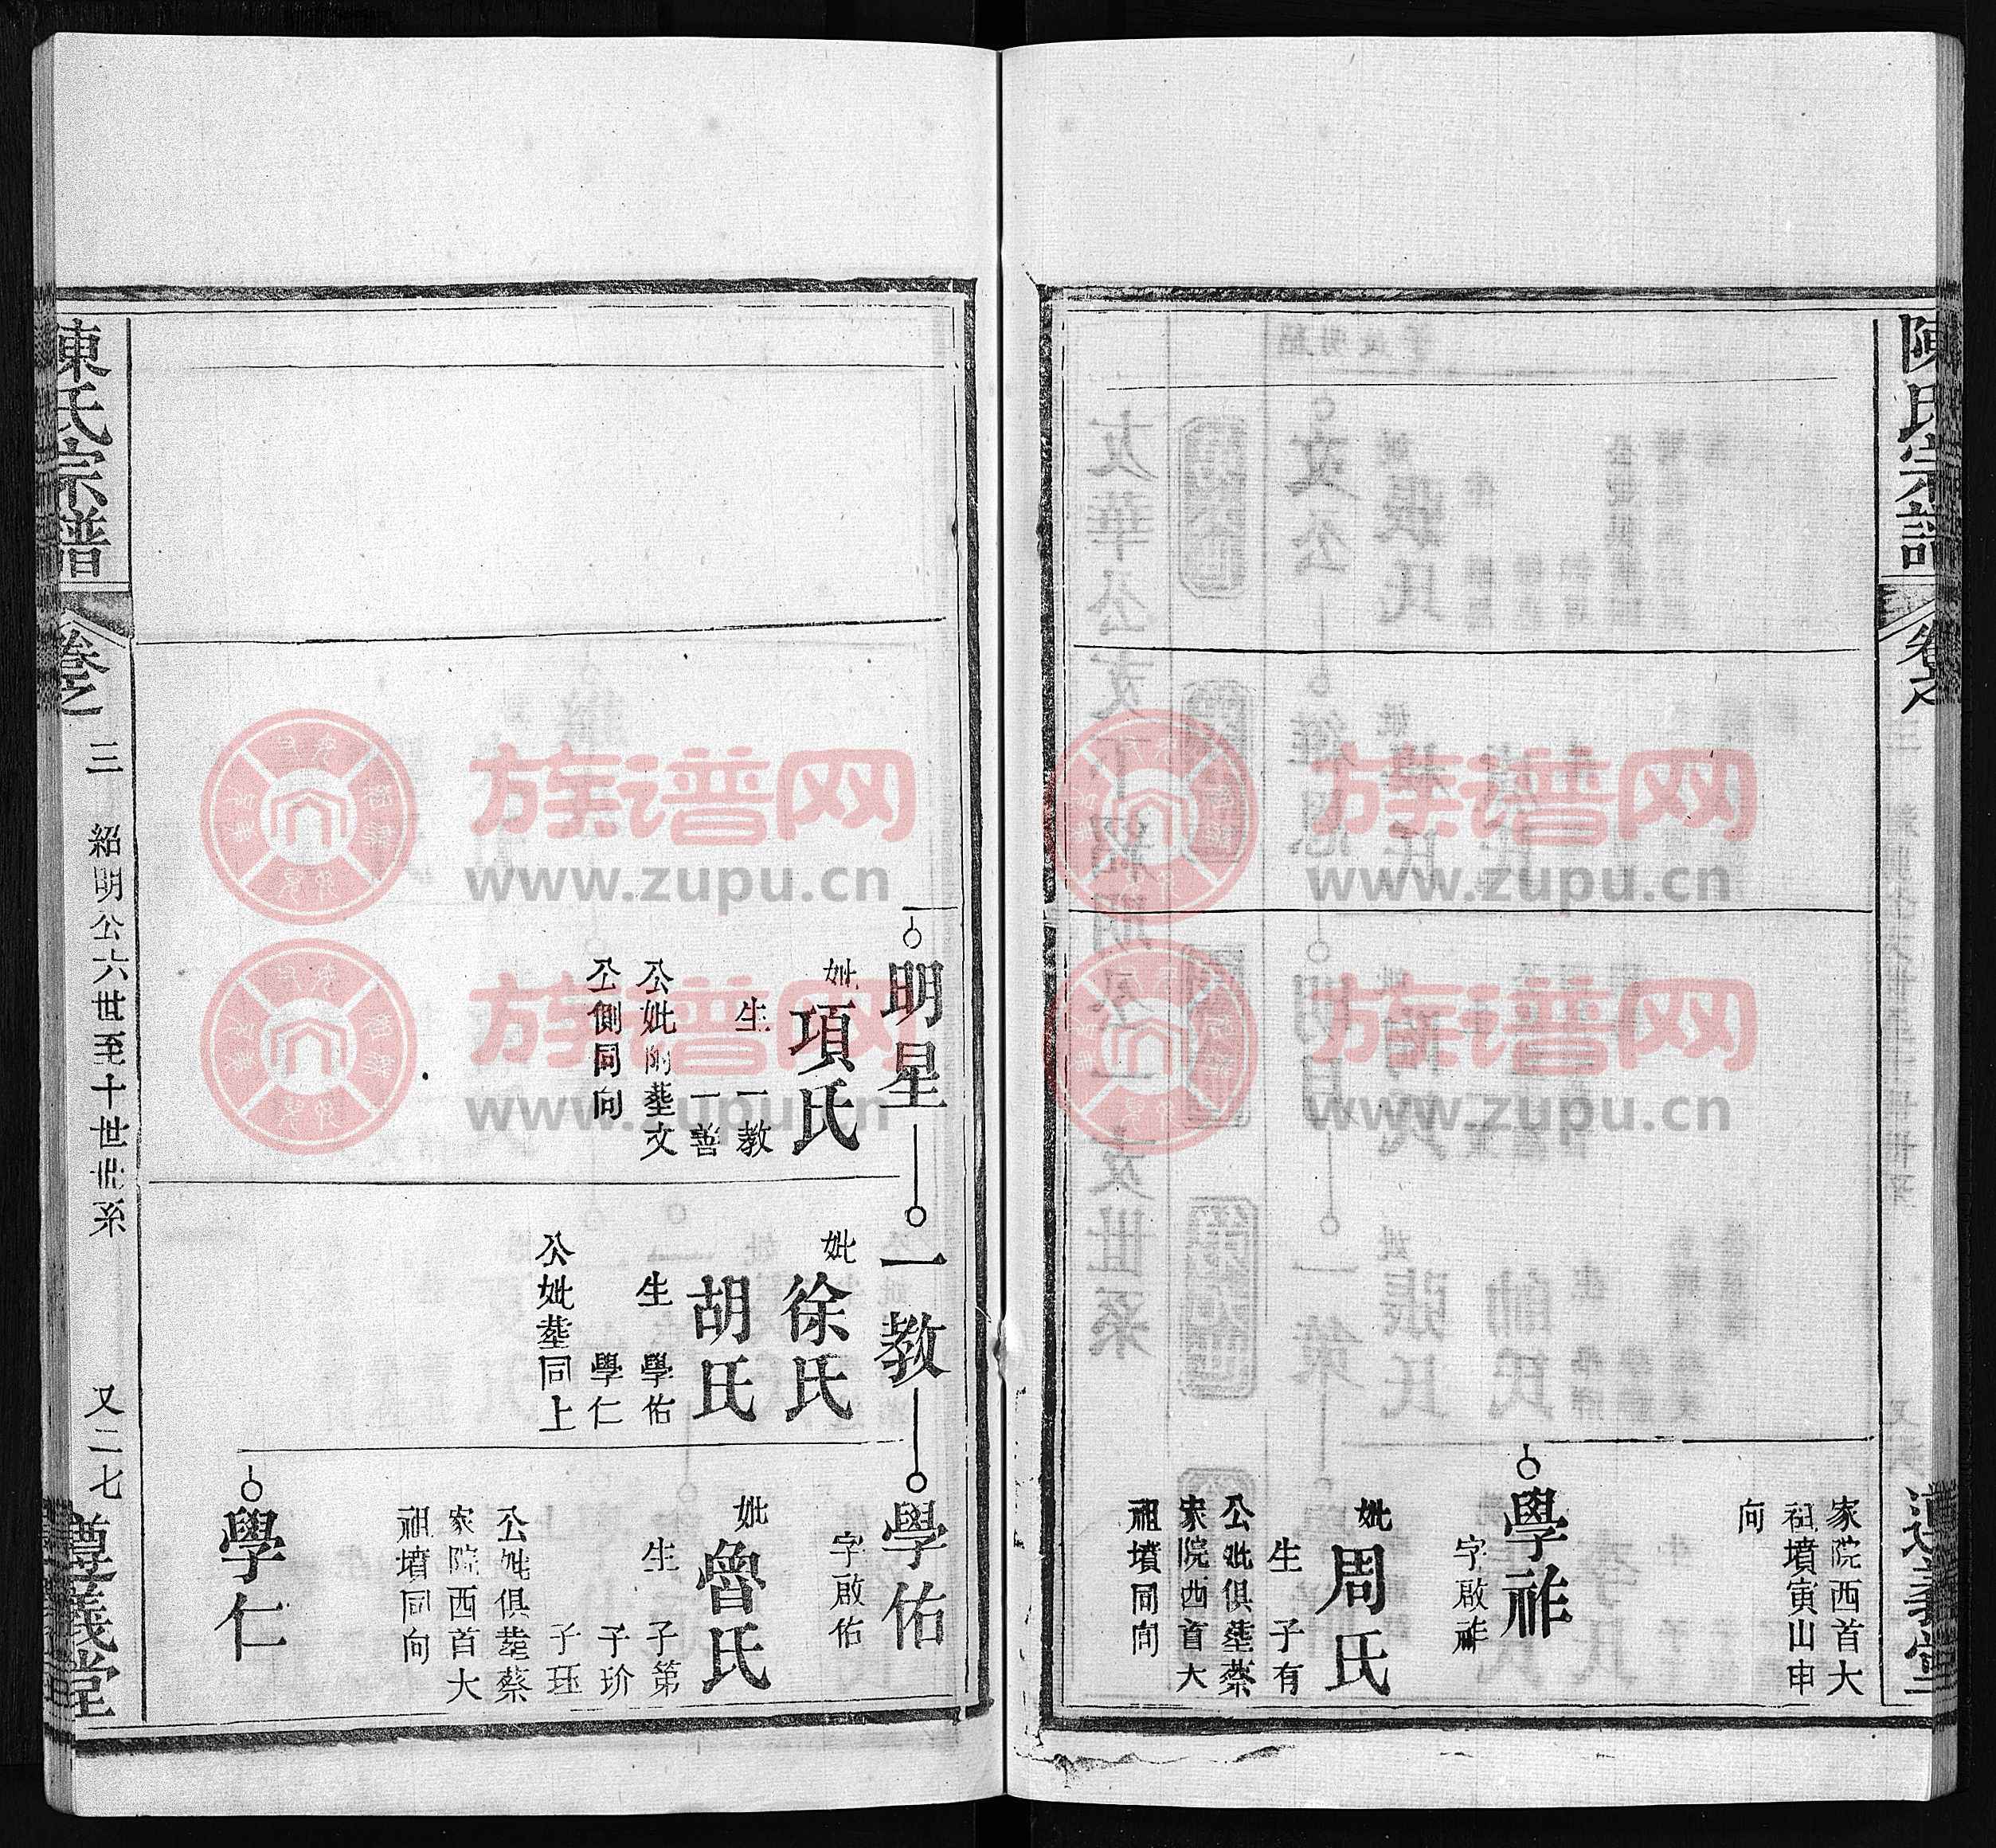 陳氏宗譜
卷之
遵義堂
家院西首大
祖墳寅山申
向
學祚
字啟祚
妣周氏
生 子有
公妣俱塟蔡
家院西首大
祖墳同向
明星
妣項氏
生 一教
一善
公妣附塟文
公側同向
一教
妣徐氏
胡氏
生 學佑
學仁
公妣塟同上
學佑
字啟佑
妣魯氏
生 子第
子玠
子珏
公妣俱塟蔡
家院西首大
祖墳同向
學仁
陳氏宗譜
卷之
三 紹明公六世至十世世系
又二七
遵義堂
族谱网
www.zupu.cn
族谱网
www.zupu.cn
族谱网
www.zupu.cn
族谱网
www.zupu.cn